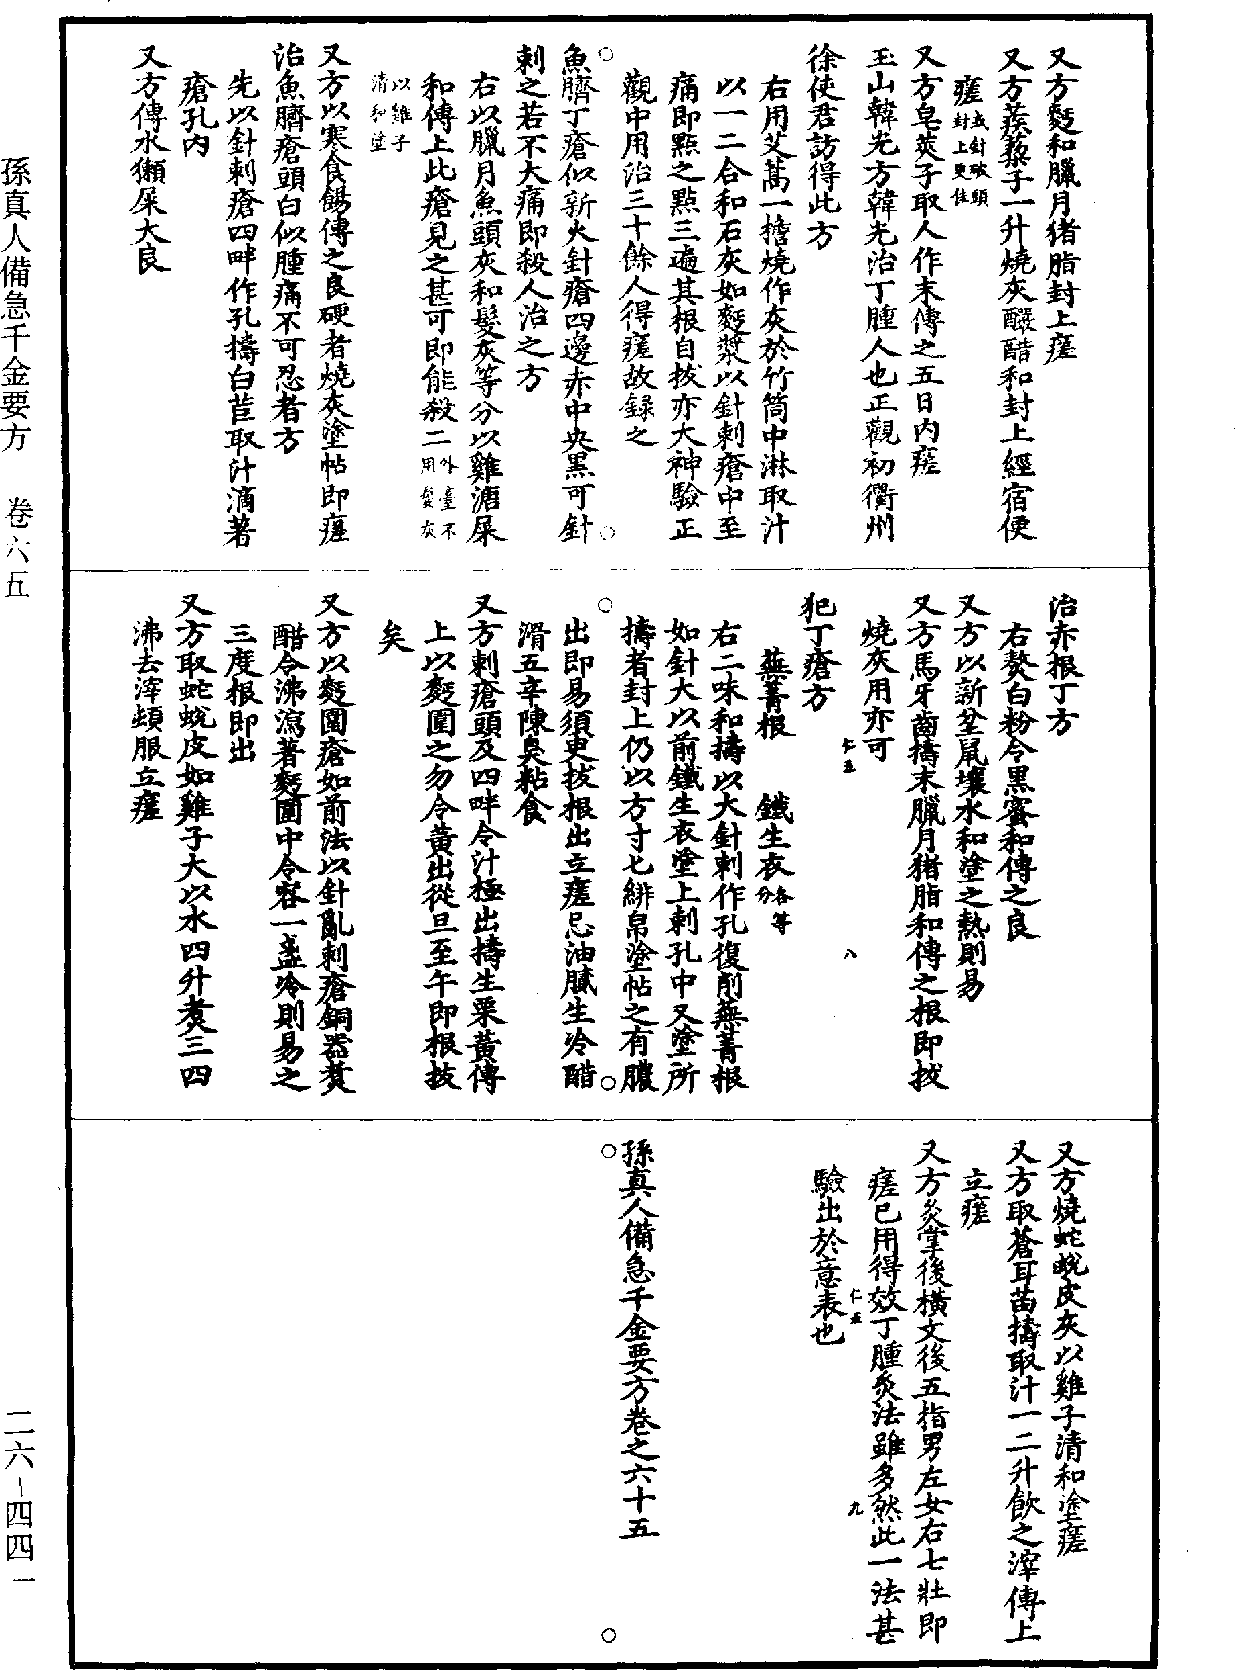 又方麫和臘月猪脂封上瘥
又方蒺䔧子一升燒灰釅醋和封上經宿便
瘥或針破頭封上更佳
又方皂莢子取人作末傅之五日內瘥
玉山韓光方韓光治丁腫人也正觀初衢州
徐使君訪得此方
右用艾蒿一擔燒作灰於竹筒中淋取汁
以一二合和石灰如麫漿以針刺瘡中至
痛即點之點三遍其根自拔亦大神驗正
觀中用治三十餘人得瘥故錄之
魚臍丁瘡似新火針瘡四邊赤中央黑可針
刺之若不大痛即殺人治之方
右以臘月魚頭灰和髮灰等分以雞溏屎
和傅上此瘡見之甚可即能殺二外臺不用髮灰
以雞子清和塗
又方以寒食餳傅之良硬者燒灰塗帖即瘥
治魚臍瘡頭白似腫痛不可忍者方
先以針刺瘡四畔作孔擣白苣取汁滴著
瘡孔內
又方傅水獺屎大良
治赤根丁方
右熬白粉令黑蜜和傅之良
又方以新坌鼠壤水和塗之熱則易
又方馬牙齒擣末臘月猪脂和傅之根即拔
燒灰用亦可
仁五 八
犯丁瘡方
蕪菁根 鐵生衣各等分
右二味和擣以大針刺作孔復削蕪菁根
如針大以前鐵生衣塗上刺孔中又塗所
擣者封上仍以方寸匕緋帛塗帖之有膿
出即易須臾拔根出立瘥忌油膩生冷醋
滑五辛陳臭粘食
又方刺瘡頭及四畔令汁極出擣生栗黃傅
上以麫圍之勿令黃出從旦至午即根拔
矣
又方以麫圍瘡如前法以針亂刺瘡銅器煑
醋令沸瀉著麫圍中令容一盞冷則易之
三度根即出
又方取蛇蛻皮如雞子大以水四升煑三四
沸去滓頓服立瘥
又方燒蛇蛻皮灰以雞子清和塗瘥
又方取蒼耳苗擣取汁一二升飲之滓傅上
立瘥
又方灸掌後橫文後五指男左女右七壯即
瘥已用得效丁腫灸法雖多然此一法甚
仁五 九
驗出於意表也
孫真人備急千金要方卷之六十五
孫真人備急千金要方 卷六五
二六-四四一